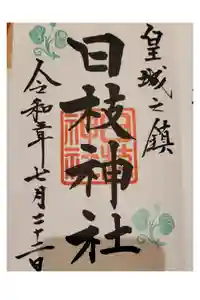 皇城之鎮
日枝神社
令和二年七月二十二日